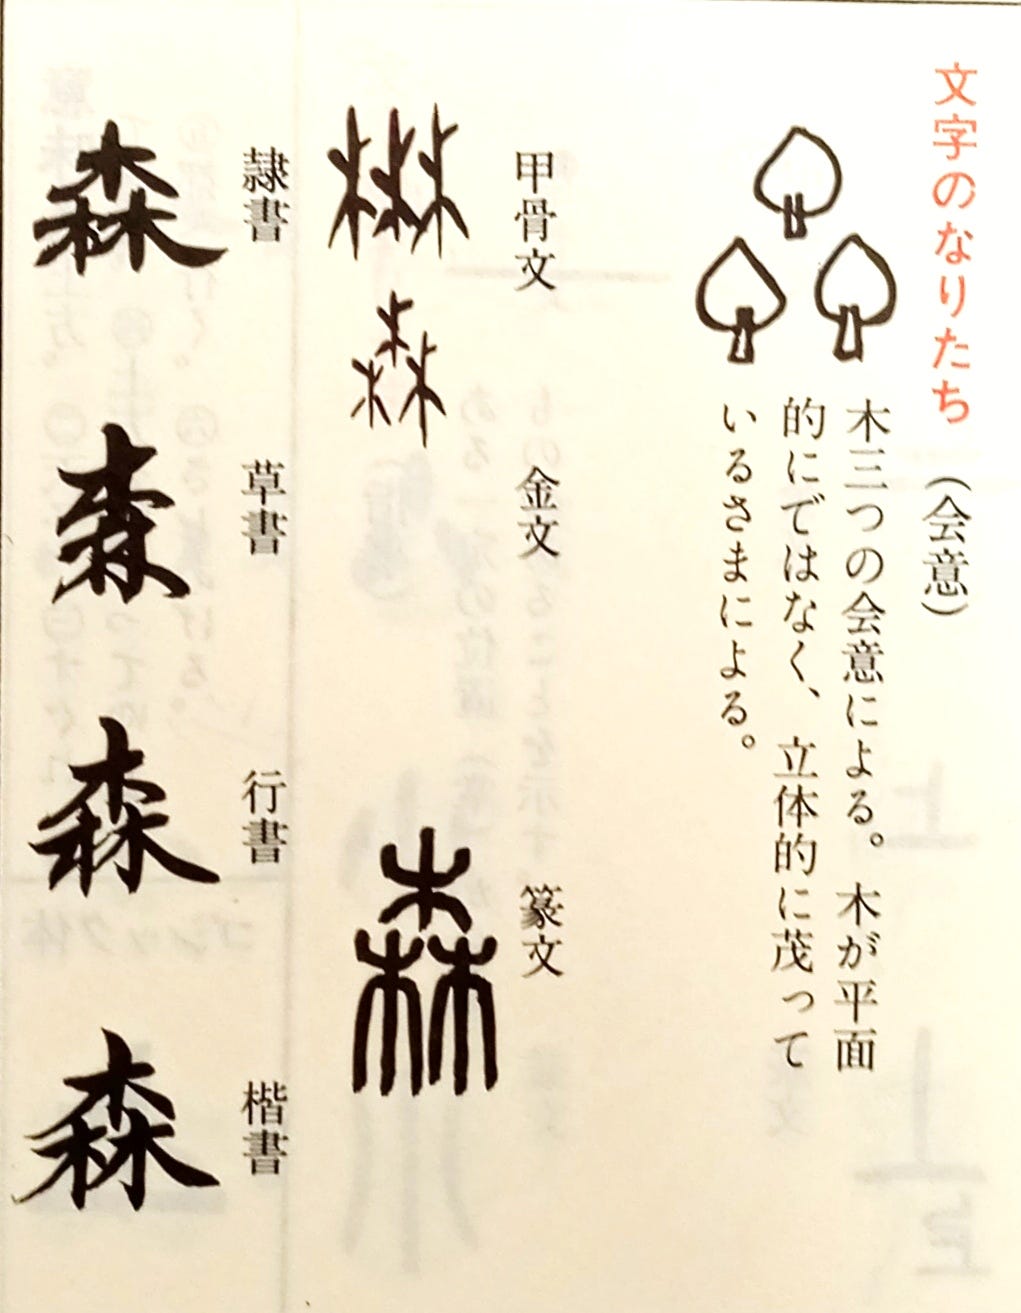 文字のなりたち（会意）
木三つの会意による。木が平面
的にではなく、立体的に茂って
いるさまによる。
甲骨文
金文
篆文
森
森
森
隷書
草書
行書
楷書
森
森
森
森